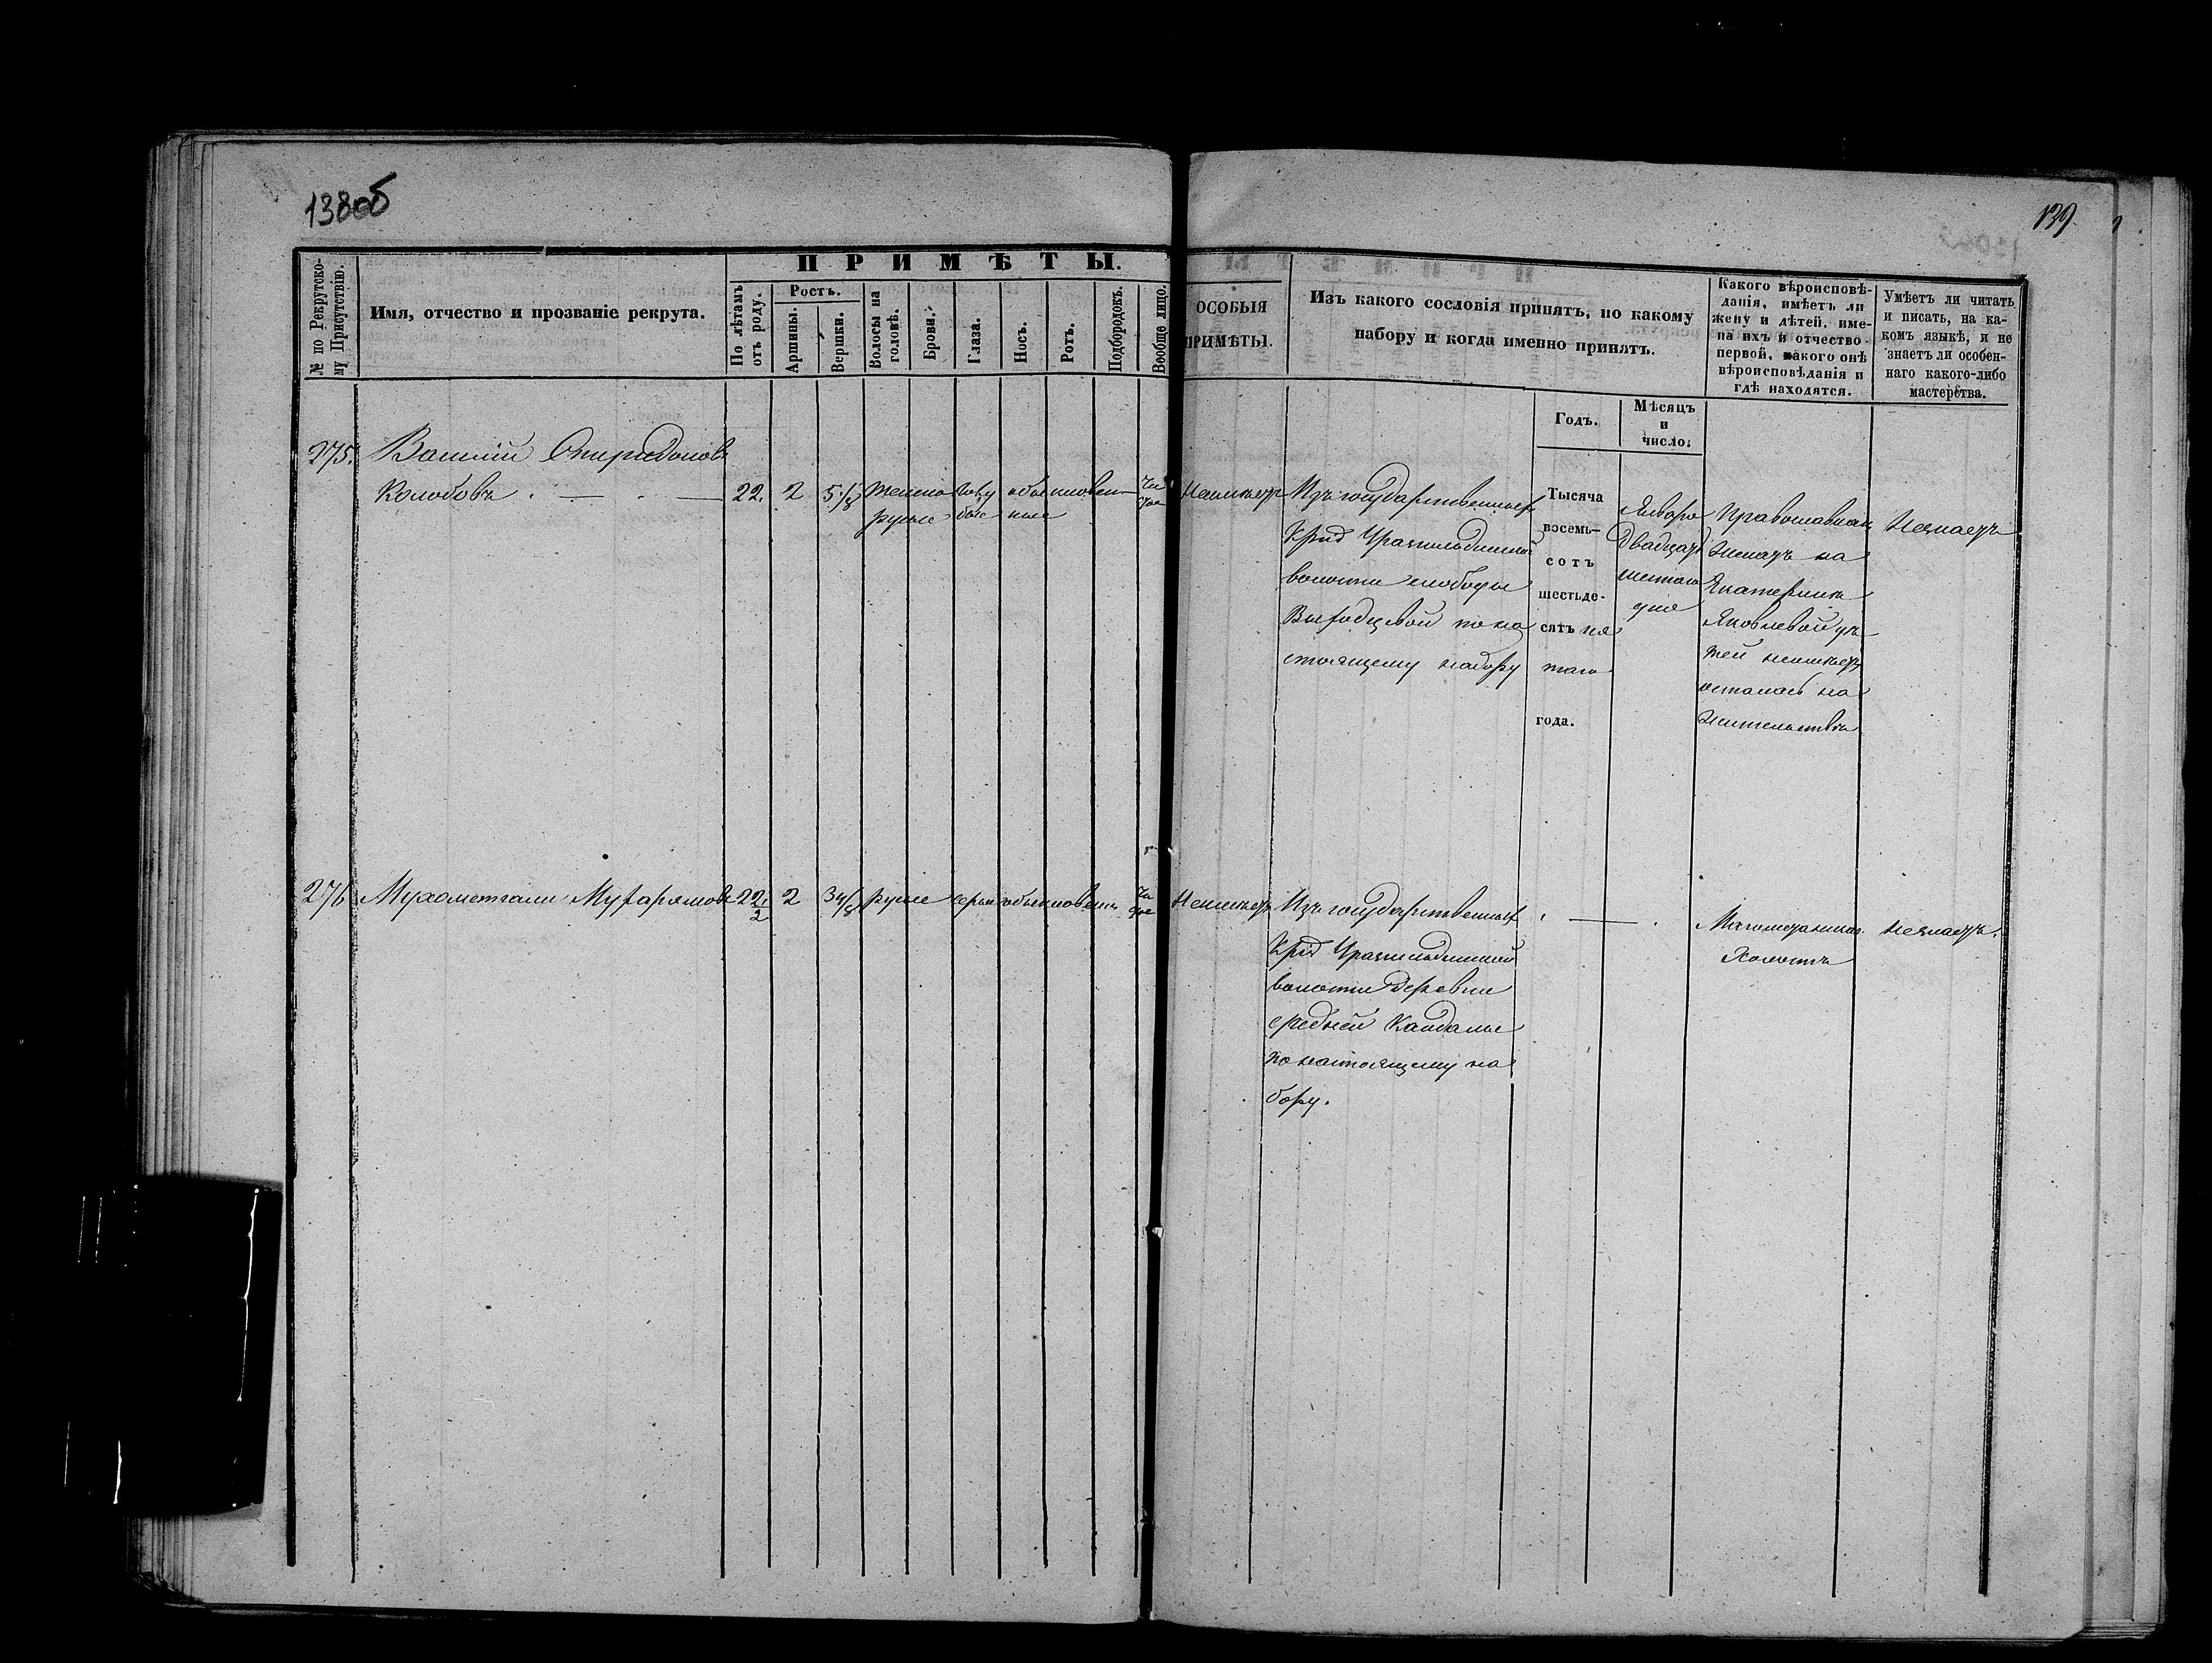 138об
139
ПРИМѢТЫ.
№ по Рекрутско-
му Присутствію.
Имя, отчество и прозваніе рекрута.
По лѣтамъ
отъ роду.
Ростъ.
Аршины.
Вершки.
Волосы на
головѣ.
Брови.
Глаза.
Носъ.
Ротъ.
Подбородокъ.
Вообще лицо.
ОСОБЫЯ
ПРИМѢТЫ.
Изъ какого сословія принятъ, по какому
набору и когда именно принятъ.
Какого вѣроисповѣ-
данія, имѣетъ ли
жену и дѣтей, име-
на ихъ и отчество
первой, какого онѣ
вѣроисповѣданія и
гдѣ находятся.
Умѣетъ ли читать
и писать, на ка-
комъ языкѣ, и не
знаетъ ли особен-
наго какого-либо
мастерства.
Годъ.
Мѣсяцъ
и
число.
275.
Василій Спиридоновъ
Колобовъ
22.
2
5 1/8
темно
русые
голу
бые
обыкновен
ные
чи
стое
Неимѣетъ
Изъ государственныхъ
Крід
волости слободы
Выходцевой по на
стоящему набору
Тысяча
восемь-
сотъ
шестьде-
сятъ пя
таго
года.
Января
двадцать
шестаго
дня
Православнаго
женатъ на
Екатеринѣ
Яковлевой дѣ
тей неимѣетъ
осталась на
жительствѣ
Незнаетъ
276
Мухаметгали
22 1/2
2
3 4/8
русые
серые
обыкновен
чи
стое
Неимѣетъ
Изъ государственныхъ
Крід
волости деревни
средней Кандалы
по настоящему на
бору.
Магометанскаго
Холостъ
незнаетъ.